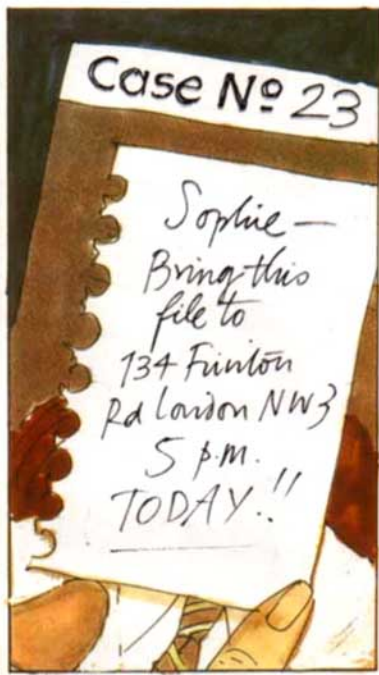 Case Nº 23
Sophie —
Bring this
file to
134 Frinton
Rd London NW3
5 p.m.
TODAY!!